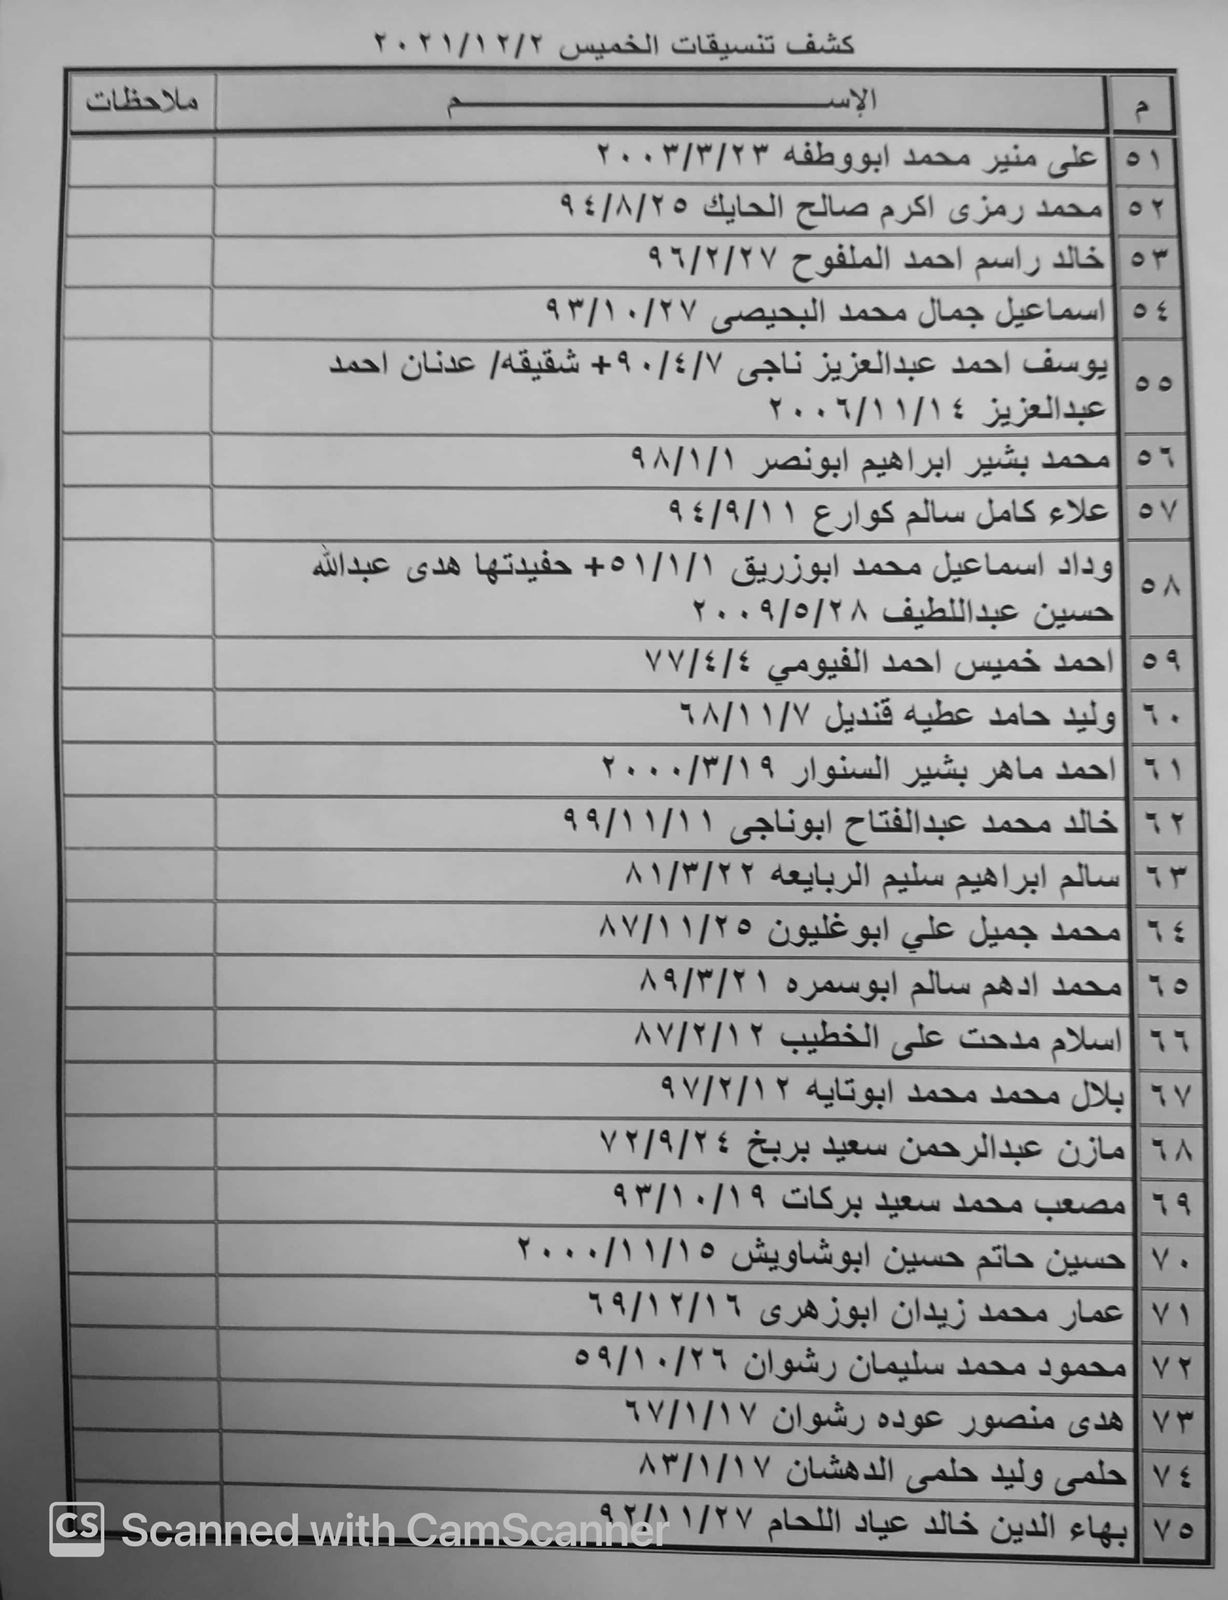 كشف تنسيقات الخميس ٢٠٢١/١٢/٢
م الإســـــــــم ملاحظات
٥١ على منير محمد ابووطفه ٢٠٠٣/٣/٢٣
٥٢ محمد رمزى اكرم صالح الحايك ٩٤/٨/٢٥
٥٣ خالد راسم احمد الملفوح ٩٦/٢/٢٧
٥٤ اسماعيل جمال محمد البحيصى ٩٣/١٠/٢٧
٥٥ يوسف احمد عبدالعزيز ناجى ٩٠/٤/٧+ شقيقه/ عدنان احمد
عبدالعزيز ٢٠٠٦/١١/١٤
٥٦ محمد بشير ابراهيم ابونصر ٩٨/١/١
٥٧ علاء كامل سالم كوارع ٩٤/٩/١١
٥٨ وداد اسماعيل محمد ابوزريق ٥١/١/١+ حفيدتها هدى عبدالله
حسين عبداللطيف ٢٠٠٩/٥/٢٨
٥٩ احمد خميس احمد الفيومي ٧٧/٤/٤
٦٠ وليد حامد عطيه قنديل ٦٨/١١/٧
٦١ احمد ماهر بشير السنوار ٢٠٠٠/٣/١٩
٦٢ خالد محمد عبدالفتاح ابوناجى ٩٩/١١/١١
٦٣ سالم ابراهيم سليم الربايعه ٨١/٣/٢٢
٦٤ محمد جميل علي ابوغليون ٨٧/١١/٢٥
٦٥ محمد ادهم سالم ابوسمره ٨٩/٣/٢١
٦٦ اسلام مدحت على الخطيب ٨٧/٢/١٢
٦٧ بلال محمد محمد ابوتايه ٩٧/٢/١٢
٦٨ مازن عبدالرحمن سعيد بربخ ٧٢/٩/٢٤
٦٩ مصعب محمد سعيد بركات ٩٣/١٠/١٩
٧٠ حسين حاتم حسين ابوشاويش ٢٠٠٠/١١/١٥
٧١ عمار محمد زيدان ابوزهرى ٦٩/١٢/١٦
٧٢ محمود محمد سليمان رشوان ٥٩/١٠/٢٦
٧٣ هدى منصور عوده رشوان ٦٧/١/١٧
٧٤ حلمى وليد حلمى الدهشان ٨٣/١/١٧
٧٥ بهاء الدين خالد عياد اللحام ٩٢/١١/٢٧
CS Scanned with CamScanner